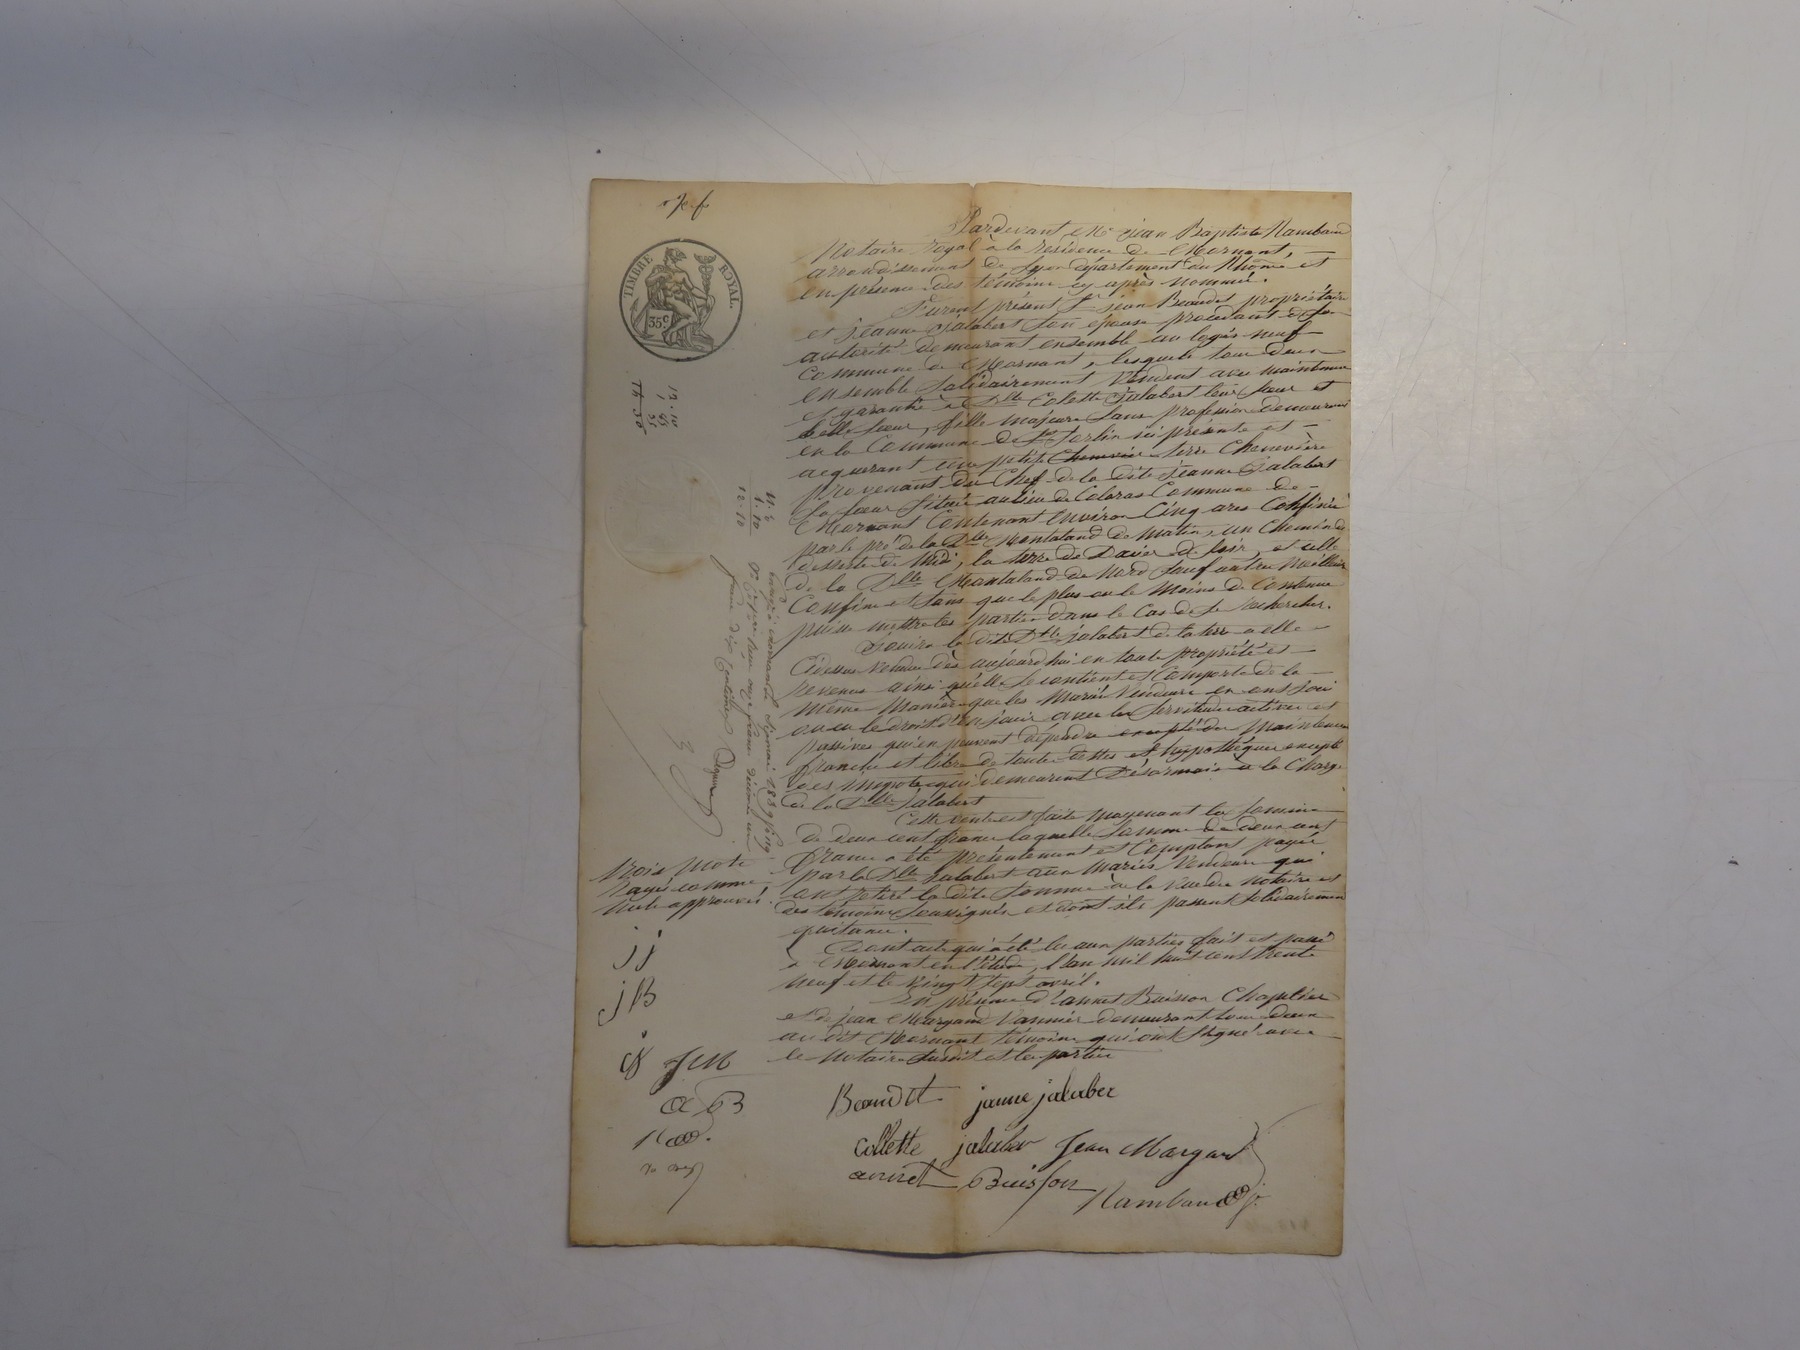 TIMBRE ROYAL.
35 c
Pardevant Me jean Baptiste Rambaud
Notaire royal à la residence de Mornant,
arrondissement de Lyon département du Rhône et
en présence des témoins cy après nommé.
Furent présent Sr jean Beaudet propriétaire
et jeanne jalabert son épouse procedant de son
autorité demeurant ensemble au logis neuf
Commune de Mornant, lesquels tous deux
ensemble Solidairement Vendent avec maintenue
et garantie à Dlle Colette jalabert leur sœur et
belle sœur, fille majeure Sans profession demeurant
en la Commune de St Sorlin ici présente et
acquerant une petite Chenevier terre Chenevière
provenant du Chef de la dite jeanne jalabert
sa sœur Située au lieu de Coloras Commune de
Mornant Contenant environ Cinq ares Confinée
par le pré de la Dlle Montaland de Matin, un Chemin de
desserte de Midi, la terre de Davier de soir, et celle
de la Dlle Montaland de Nord Sauf autre meilleur
Confins et Sans que le plus ou le Moins de Contenue
puisse mettre les parties dans le Cas de Se rechercher.
Jouira la dite Dlle jalabert de la terre à elle
Cidessus Vendue dès aujourd'hui en toute propriété et
revenus ainsi qu'elle Se contient et Comporte de la
même Manière que les Mariés Vendeurs en ont joui
ou eu le droit d'en jouir avec les Servitudes actives et
passives qui en peuvent dépendre excepté de maintenue
franche et libre de toute dettes et hypothèques excepté
les impots qui demeurent Désormais à la Charge
de la Dlle jalabert
Cette vente est faite moyenant la Somme
de deux cent francs laquelle Somme de deux cent
francs a été présentement et Comptant payée
par la Dlle jalabert aux Mariés Vendeurs qui
ont retiré la dite Somme à la Vue du Notaire et
des témoins Soussignés et dont ils passent Solidairement
quitance.
Dont acte qui a été lu aux parties fait et passé
à Mornant en l'étude, l'an mil huit cent trente
neuf et le Vingt Sept avril.
En présence d'annet Buisson Chapelier
et de jean Margand Vannier demeurant tous deux
au dit Mornant témoins qui ont Signé avec
le Notaire Susdit et les parties
Beaudet jeanne jalaber
Collette jalaber Jean Margand
annet Buisson
Rambaud
12. 10
1 65
35
14 30
11. "
1. 10
12. 10
trois mots
rayés comme
nuls approuvés.
jj
jB
cj JM
a B